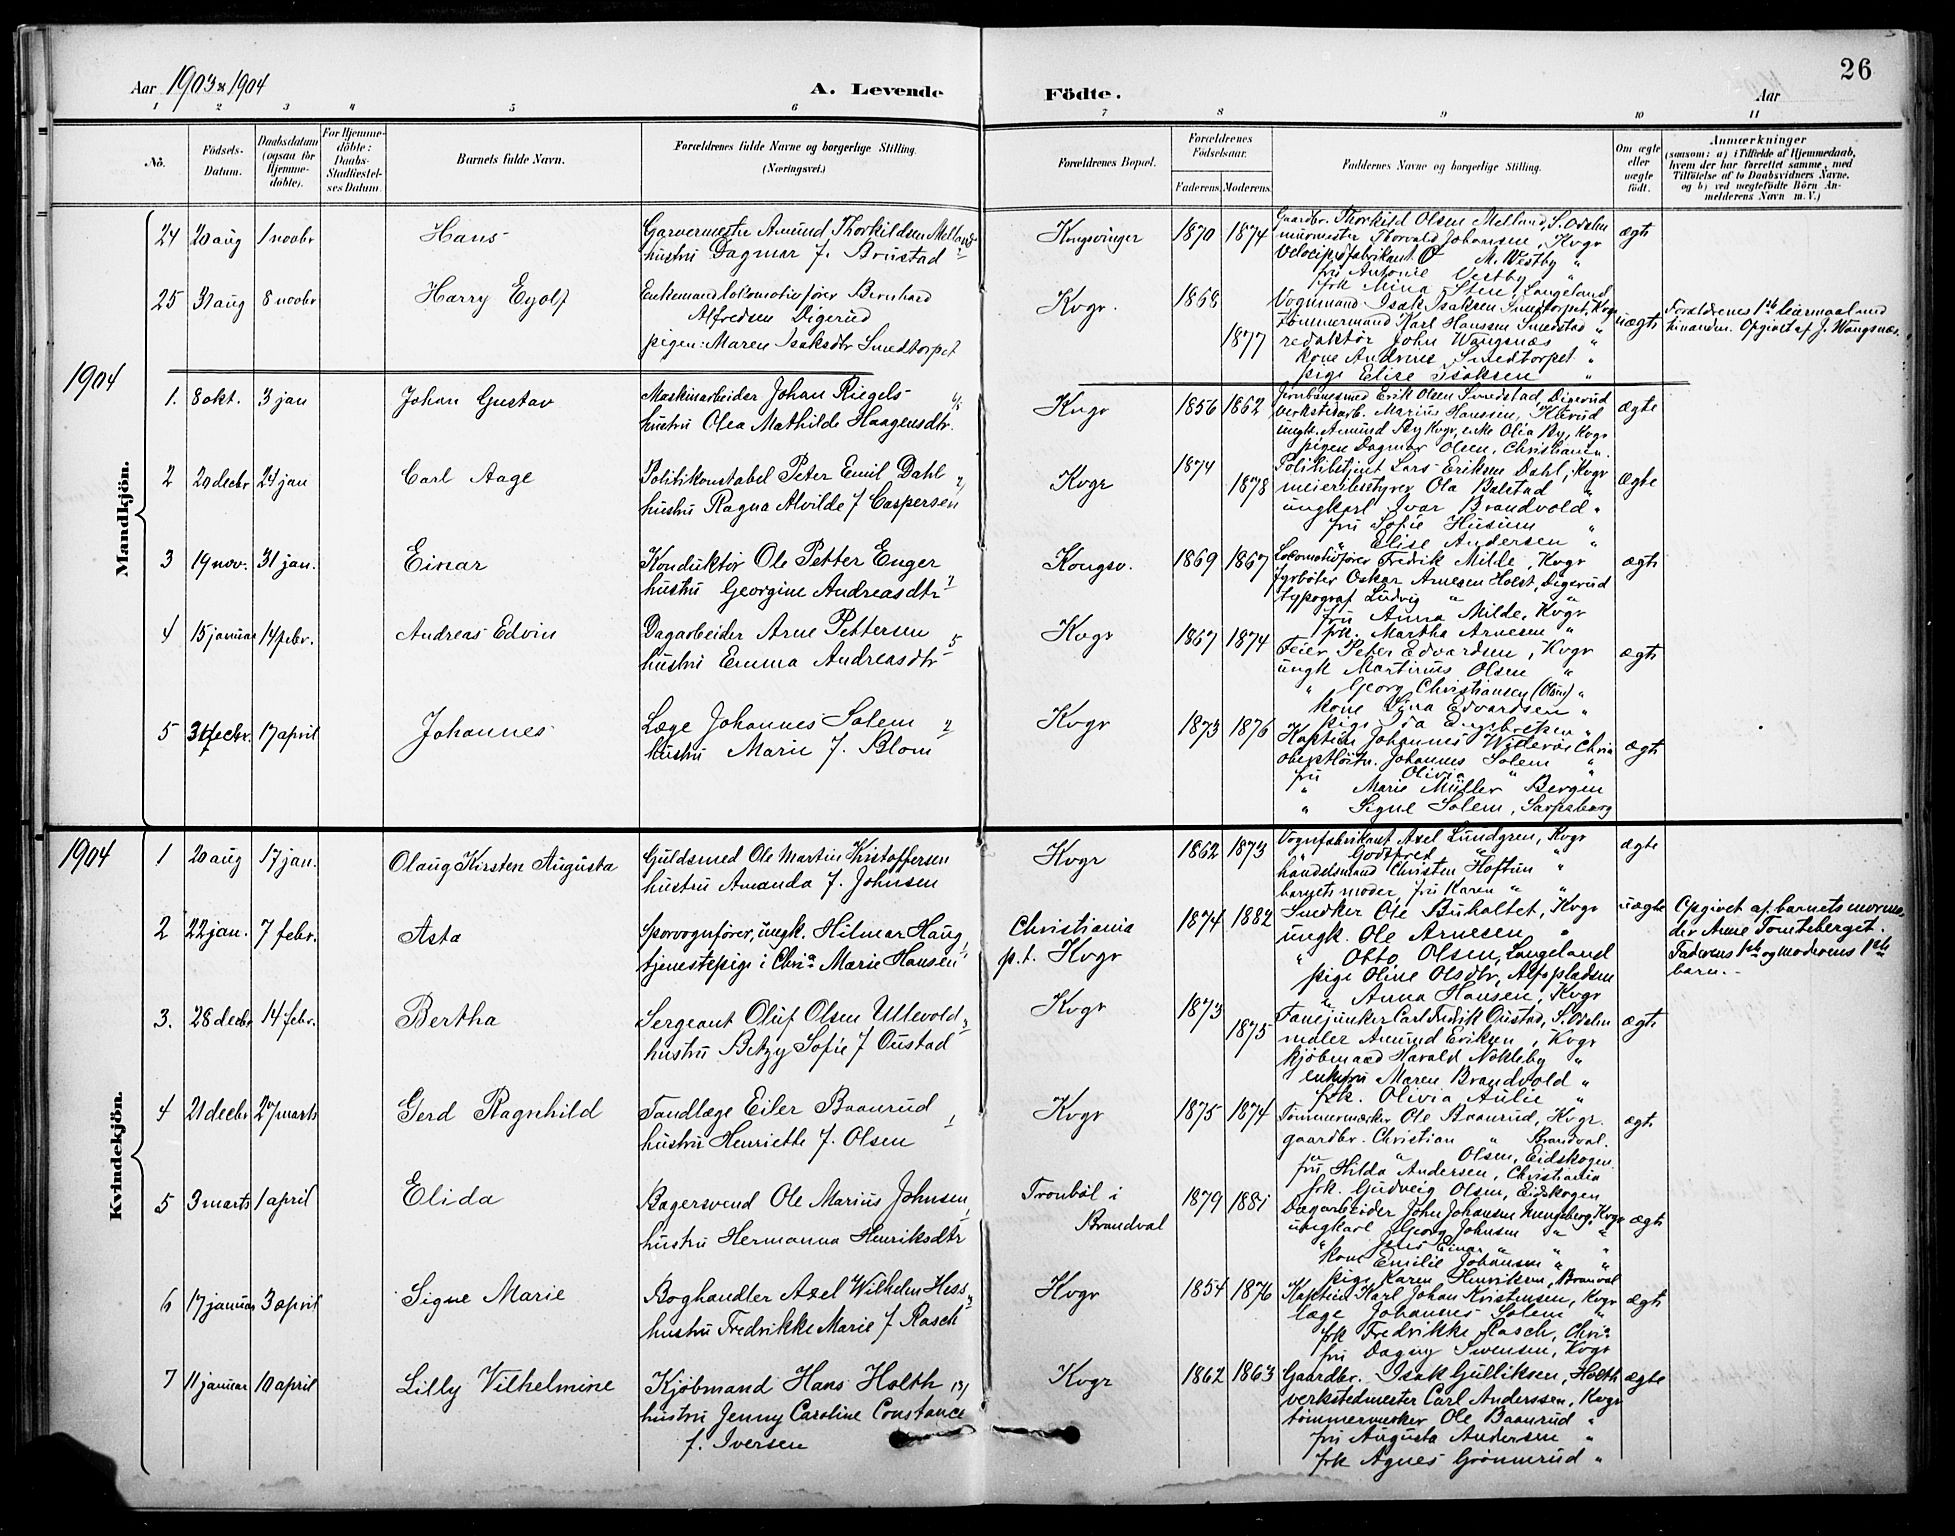 26
Aar 1903 & 1904
A. Levende Födte.
Aar
1 2 3 4 5 6 7 8 9 10 11
No.
Födsels-Datum.
Daabsdatum (ogsaa for Hjemme-döbte).
For Hjemme-döbte: Daabs-Stadfæstel-ses Datum.
Barnets fulde Navn.
Forældrenes fulde Navne og borgerlige Stilling. (Næringsvei.)
Forældrenes Bopæl.
Forældrenes Födselsaar.
Faderens. Moderens.
Faddernes Navne og borgerlige Stilling.
Om ægte eller uægte födt.
Anmærkninger
(saasom: a) i Tilfælde af Hjemmedaab,
hvem der har forrettet samme, med
Tilföielse af to Daabsvidners Navne.
og b) ved uægtefödte Börn An-
melderens Navn m. V.)
Mandkjön.
24 20 aug 1 novbr Hans
Garvermester Amund Thorkildsen Melland
hustru Dagmar f. Brustad
Kongsvinger 1870 1874
Gaardbr. Thorkild Olsen Melland, S. Odalen
murmester Thorvald Johansen, Kvgr
Velocipedfabrikant O M. Vestby "
fru Antonie Vestby "
frk Mina Sten, Langeland
ægte
25 31 aug 8 novbr Harry Eyolf
Enkemand lokomotivfører Bernhard
Alfredsen Digerud
pigen: Maren Isaksdtr Smedtorpet
Kvgr. 1868 1877
Vognmand Isak Isaksen Smedtorpet, Kvgr
Tømmermand Karl Hanssen Smedstad "
redaktør John Wangsnæs "
kone Andrine Smedtorpet "
pige Elise Isaksen "
uægte
Forældrenes 1ste leiermaal med
hinanden. Opgivet af J. Wangsnæs.
1904
1. 8 okt. 3 jan Johan Gustav
Maskinarbeider Johan Riegels-
hustru Olea Mathilde Haagensdtr.
Kvgr 1856 1862
Jernbanesmed Erik Olsen Smedstad, Digerud
verkstedarb. Marius Hanssen,
ungk. Amund By Kvgr, enke Olia By, Kvgr
pigen Dagmar Olsen, Christiania.
ægte
2 20 decbr 24 jan Carl Aage
Politikonstabel Peter Emil Dahl
hustru Ragna Alvilde f Caspersen
Kvgr 1874 1878
Politibetjent Lars Eriksen Dahl, Kvgr
meieribestyrer Ola Balstad "
ungkarl Ivar Brandvold "
fru Sofie Husum "
" Elise Andersen "
ægte
3 19 nov. 31 jan. Einar
Konduktør Ole Petter Enger
hustru Georgine Andreasdtr
Kongsv. 1869 1867
Lokomotivfører Fredrik Milde, Kvgr
fyrbøter Oskar Arnesen Holst, Digerud
typograf Ludvig " "
fru Anna Milde, Kvgr
frk. Martha Arnesen "
ægte
4 15 januar 14 febr. Andreas Edvin
Dagarbeider Arne Pettersen 5
hustru Emma Andreasdtr
Kvgr 1867 1874
Feier Peter Edvardsen, Kvgr
ungk Martinus Olsen "
" Georg Christiansen (Olsen) "
kone Lina Edvardsen "
pige Ida Engebretsen "
ægte
5 31 decbr. 17 april Johannes
Læge Johannes Solem 2
hustru Marie f. Blom
Kvgr 1873 1876
Kaptein Johannes Chria
oberstløitn. Johannes Solem "
fru Olivia " "
" Marie Müller Bergen
" Signe Solem, Sarpsborg
ægte
1904
Kvindekjön.
1 20 aug 17 jan. Olaug Kirsten Augusta
Guldsmed Ole Martin Kristoffersen
hustru Amanda f. Johnsen
Kvgr 1862 1873
Vognfabrikant Axel Lundgren, Kvgr
" Godtfred " "
handelsmand Christen Hoftun "
barnets moder, fru Karen " "
ægte
2 22 jan. 7 febr. Asta
Sporvognfører, ungk. Hilmar Haug
tjenestepige i Chria Marie Hansen
Christiania
p.t. Kvgr
1874 1882
Snedker Ole Buholtet, Kvgr
ungk. Ole Arnesen "
" Otto Olsen, Langeland
pige Oline Olsdtr, Alfspladsen
" Anna Hansen, Kvgr
uægte
Opgivet af barnets mormo-
der Anne Tomteberget.
Faderens 1ste og moderens 1ste
barn. -
3. 28 decbr 14 febr. Bertha
Sergeant Oluf Olsen Ullevold 3
hustru Betzy Sofie f Oustad
Kvgr 1873 1875
Fanejunker Carl Fredrik Oustad, S. Odalen
Amund Eriksen, Kvgr
kjøbmand Harald Nøkleby "
enkefru Maren Brandvold "
frk. Olivia Aulie "
ægte
4 21 decbr 27 marts Gerd Ragnhild
Tandlæge Eiler Baanrud 1
hustru Henriette f. Olsen
Kvgr 1875 1874
Tømmermærker Ole Baanrud, Kvgr.
gaardbr. Christian " Brandval.
" " Olsen, Eidskogen
fru Hilda Andersen, Christiania
frk. Gudveig Olsen, Eidskogen
ægte
5 3 marts 1 april Elida
Bagersvend Ole Marius Johnsen 1
hustru Hermanna Henriksdtr
Tronbøl i
Brandval
1879 1881
Dagarbeider John Johansen Kongsberg, Kvgr
ungkarl Georg Johnsen " "
" Jens Einar " " "
kone Emilie Johansen " "
pige Karen Henriksen, Brandval
ægte
6 17 januar 3 april Signe Marie
Boghandler Axel Wilhelm Hess
hustru Fredrikke Marie f Rasch
Kvgr 1854 1876
Kaptein Karl Johan Kristensen, Kvgr
læge Johannes Solem "
frk Fredrikke Rasch, Chria
fru Dagny Svensen, Kvgr
ægte
7 11 januar 10 april Lilly Vilhelmine
Kjøbmand Hans Holth 13/
hustru Jenny Caroline Constance
f. Iversen
Kvgr 1862 1863
Gaardbr. Isak Gulliksen, Holth
verkstedmester Carl Anderssen, Kvgr
tømmermerker Ole Baanrud "
fru Augusta Andersen "
frk Agnes Grønnerud "
ægte